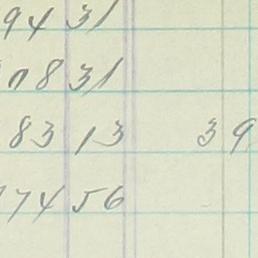 94 31
78 31
83 13 39
174 56